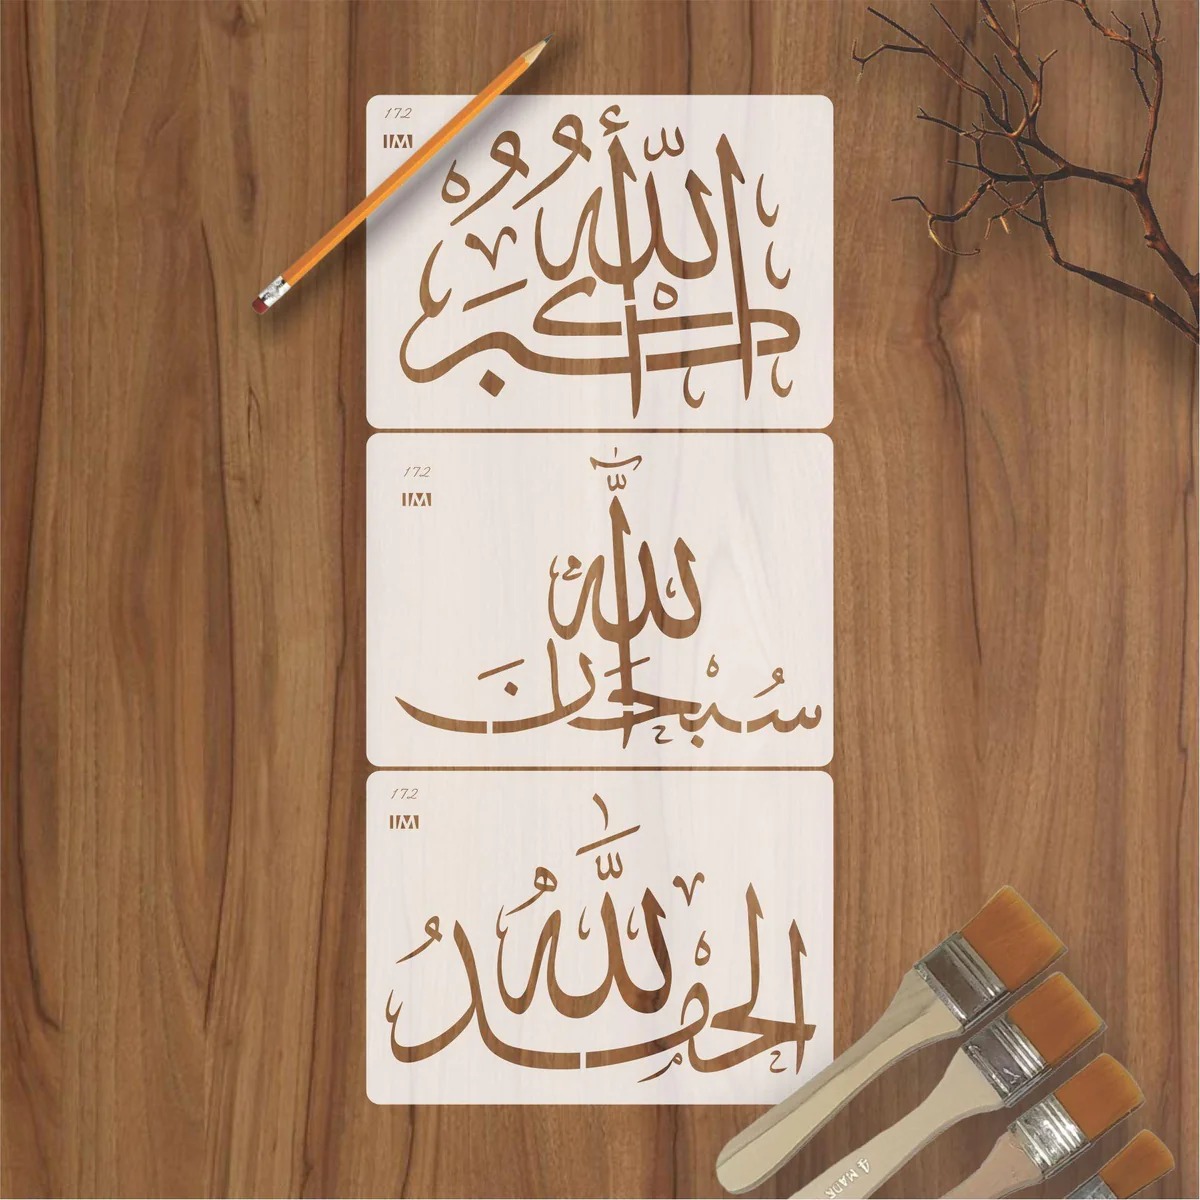 172
IM
الله أكبر
172
IM
سبحان الله
172
IM
الحمد لله
4 MARK